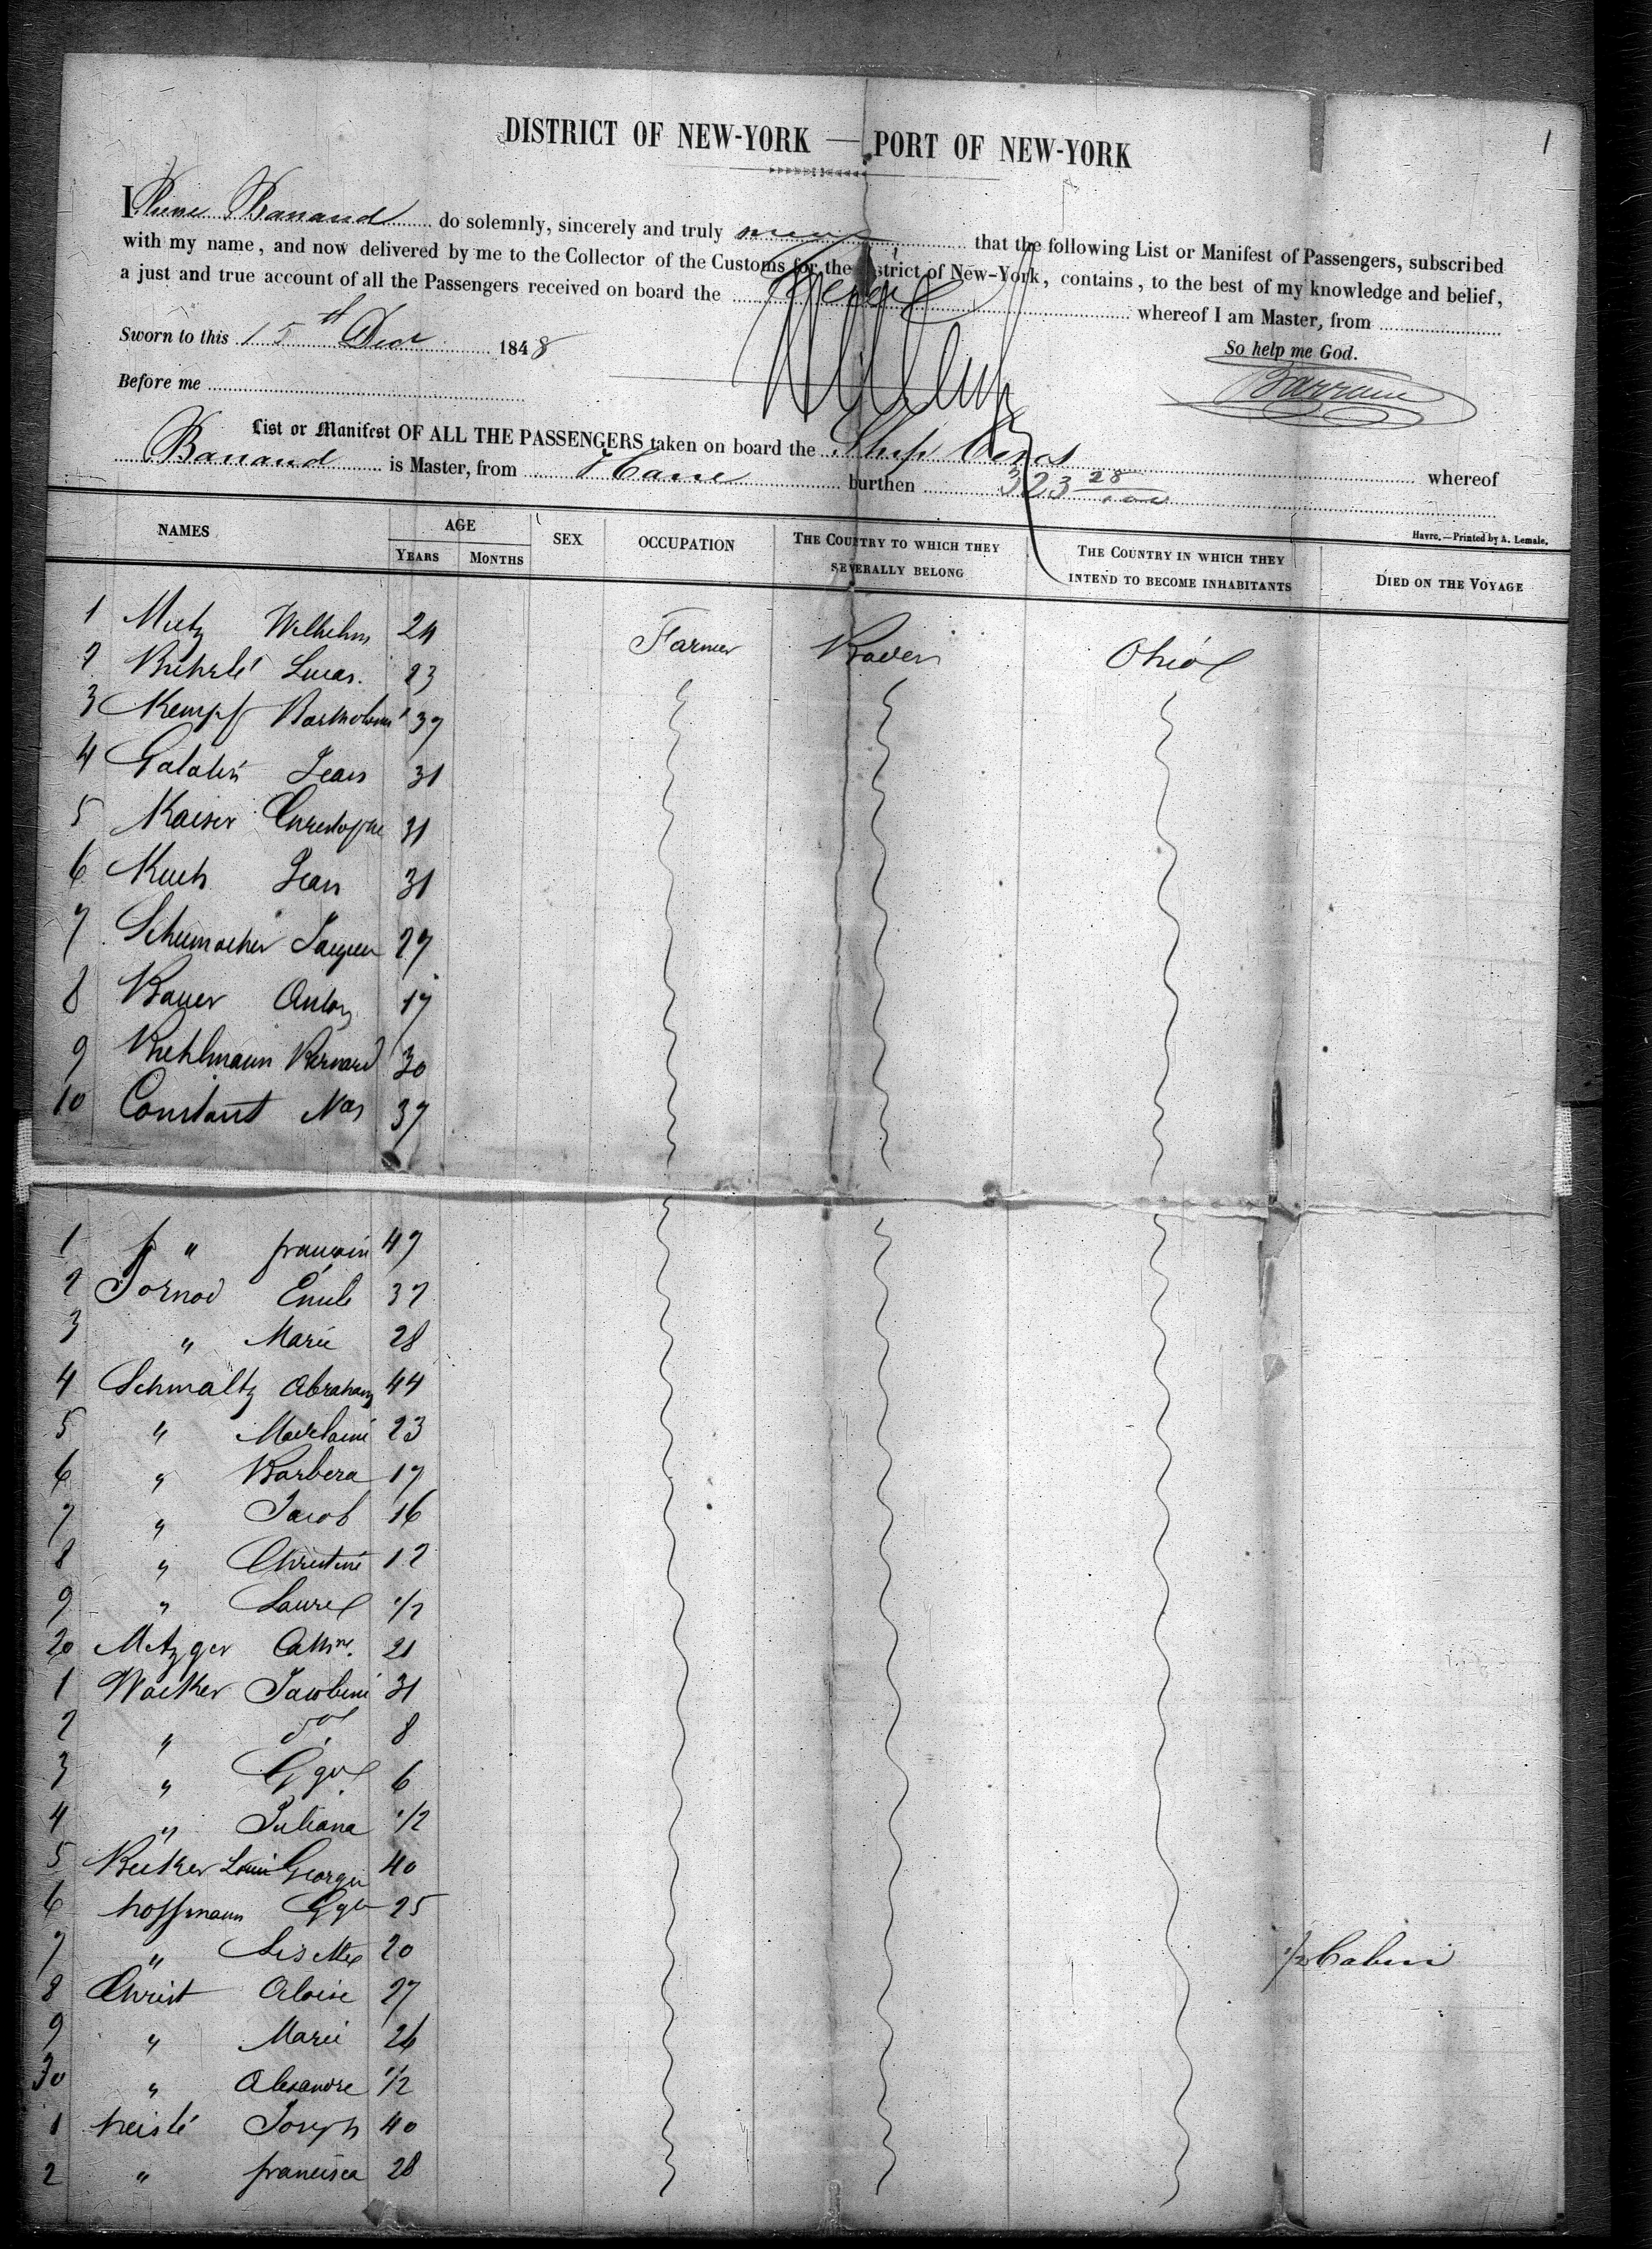 1
DISTRICT OF NEW-YORK — PORT OF NEW-YORK
I Banaud do solemnly, sincerely and truly that the following List or Manifest of Passengers, subscribed
with my name, and now delivered by me to the Collector of the Customs for the District of New-York, contains, to the best of my knowledge and belief,
a just and true account of all the Passengers received on board the whereof I am Master, from
Sworn to this 15th Dec 1848
So help me God.
Before me
List or Manifest OF ALL THE PASSENGERS taken on board the Ship whereof
Banaud is Master, from Havre burthen 323 28
Havre.—Printed by A. Lemale.
NAMES AGE SEX OCCUPATION THE COUNTRY TO WHICH THEY SEVERALLY BELONG THE COUNTRY IN WHICH THEY INTEND TO BECOME INHABITANTS DIED ON THE VOYAGE
YEARS MONTHS
1 Mutz Wilhelm 24 Farmer Baden Ohio
2 Lucas. 23
3 Kempf 37
4 Galatin Jean 31
5 Kaiser Christophe 31
6 Jean 31
7 Schumacher Jaques 27
8 Bauer Anton 17
9 Bernard 30
10 Constant Nas 37
1 " françois 47
2 Jornod Emile 37
3 " Marie 28
4 Schmaltz Abraham 44
5 " Madelaine 23
6 " Barbera 17
7 " Jacob 16
8 " Christine 12
9 " Laure 1/2
20 Metzger Cathne. 21
1 Wacker Jacobine 31
2 " do 8
3 " Gge 6
4 " Juliana 1/2
5 Becker Louis George 40
6 hoffmann Gge 25
7 " Lisette 20 1/2 Cabin
8 Christ Aloise 27
9 " Marie 26
30 " Alexandre 1/2
1 heislé Joseph 40
2 " francisca 28